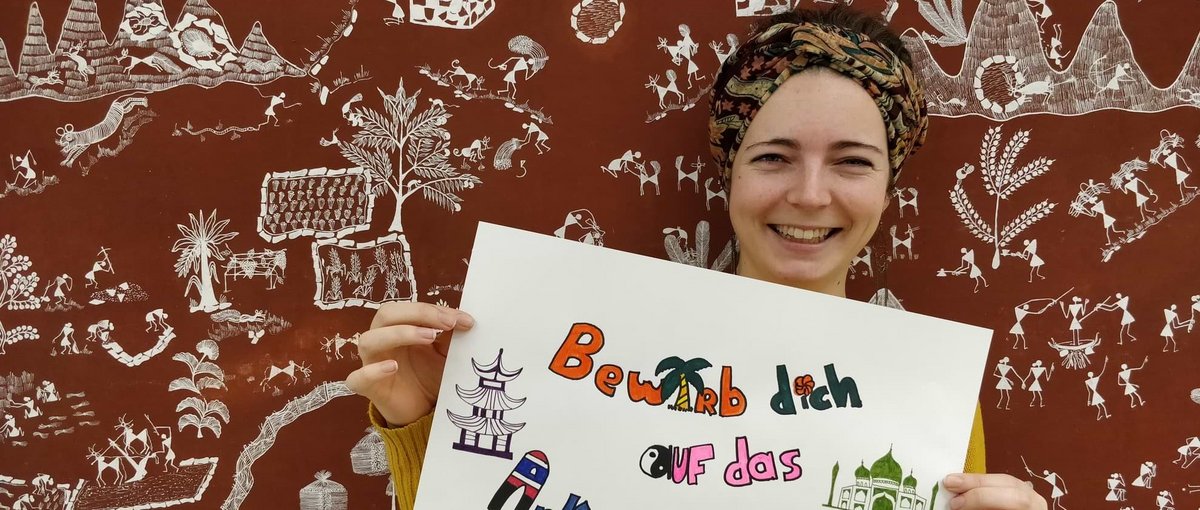 Bewirb dich
auf das